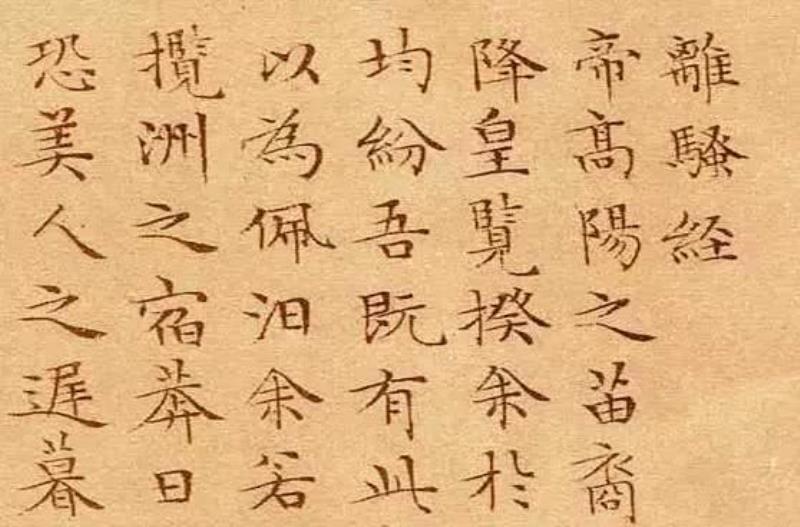 離騷経
帝髙陽之苗裔
降皇覽揆余於
均紛吾既有此
以為佩汩余若
攬洲之宿莽日
恐美人之遲暮